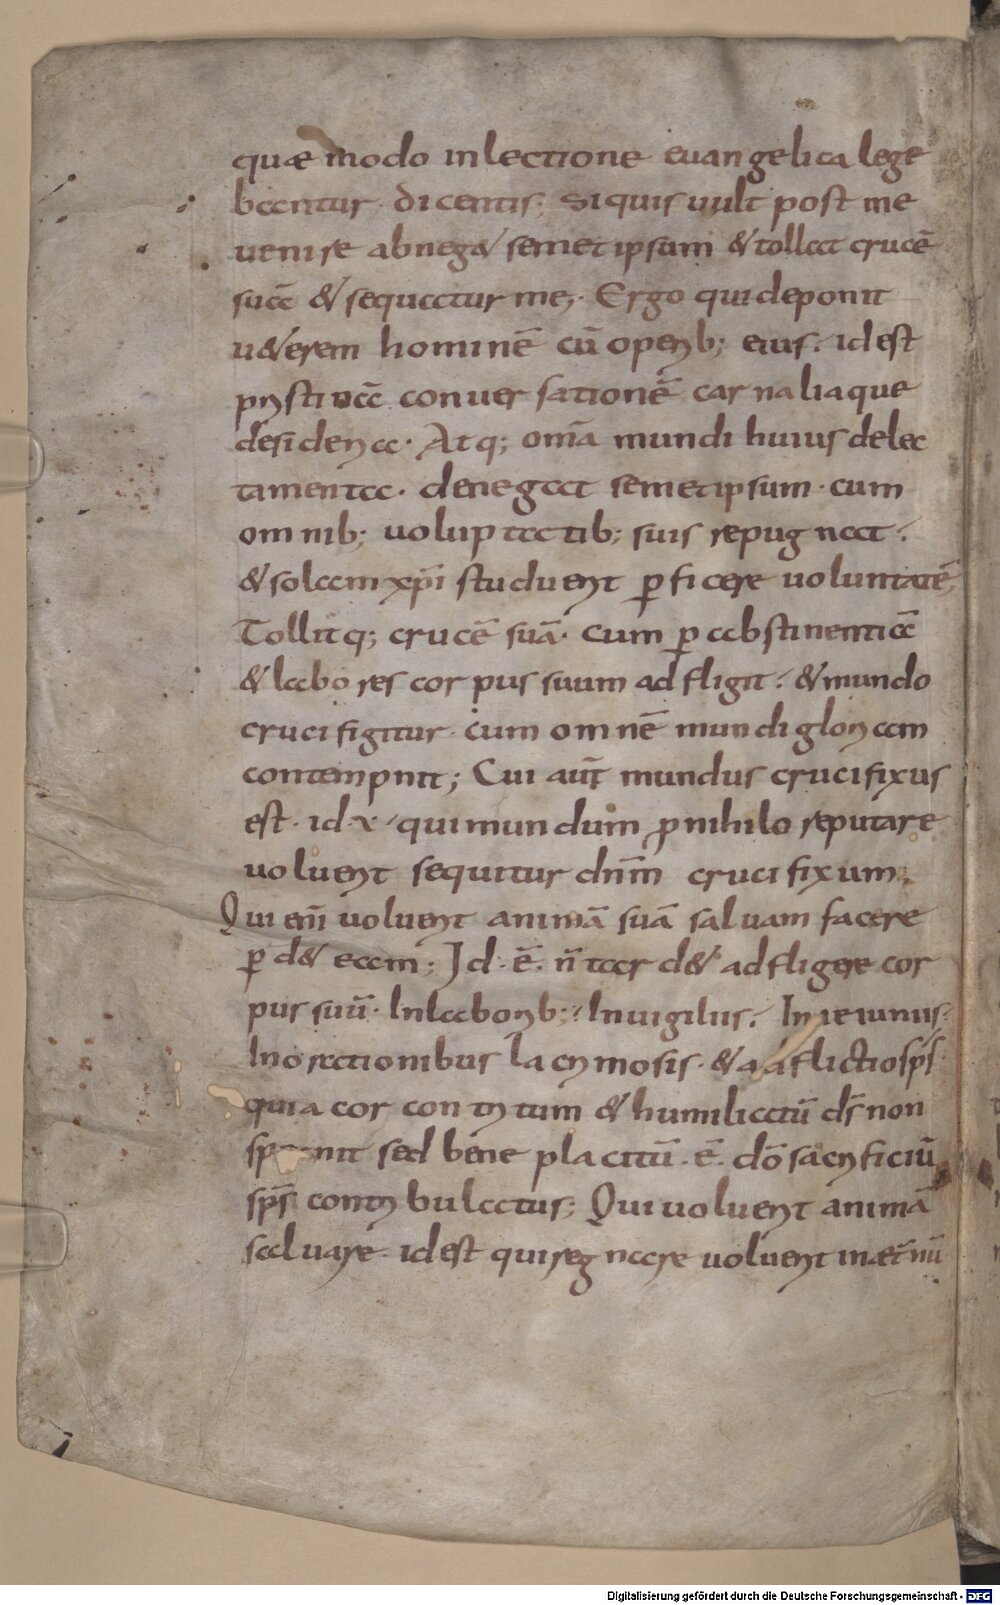 quae modo in lectione euangelica lege
bantur dicentis; Si quis uult post me
uenire abneg& semet ipsum & tollat crucē
suā & sequatur me;· Ergo qui deponit
u&erem hominē cū operib; eius. id est
pristinā conuersationē carnaliaque
desideria· Atq; om̄a mundi huius delec
tamenta· denegat semetipsum· cum
omnib; uoluptatib; suis repugnat.
& solam xp̄i studuerit ꝑficere uoluntatē;
Tollitq; crucē suā· cum ꝑ abstinentiā
& labores corpus suum adfligit. & mundo
crucifigitur· cum omnē mundi gloriam
contempnit; Cui aut̄ mundus crucifixus
est· id·x· qui mundum ꝓ nihilo reputare
voluerit sequitur dn̄m crucifixum;
Qui eni̅ uoluerit animā suā saluam facere
ꝑd& eam; Id·ē· n̄ tar d& adfligere cor
pus suū· In laborib;. In uigiliis. In ieiuniis.
In orationibus lacrymosis· & adflictio sp̄s·
quia cor contritum & humiliatū ds̄ non
spernit sed bene placitū·ē· dō sacrificiū
sp̄s contribulatus; Qui uoluerit animā
saluare· id est qui regnare uoluerit in aet̄nū
Digitalisierung gefördert durch die Deutsche Forschungsgemeinschaft - DFG